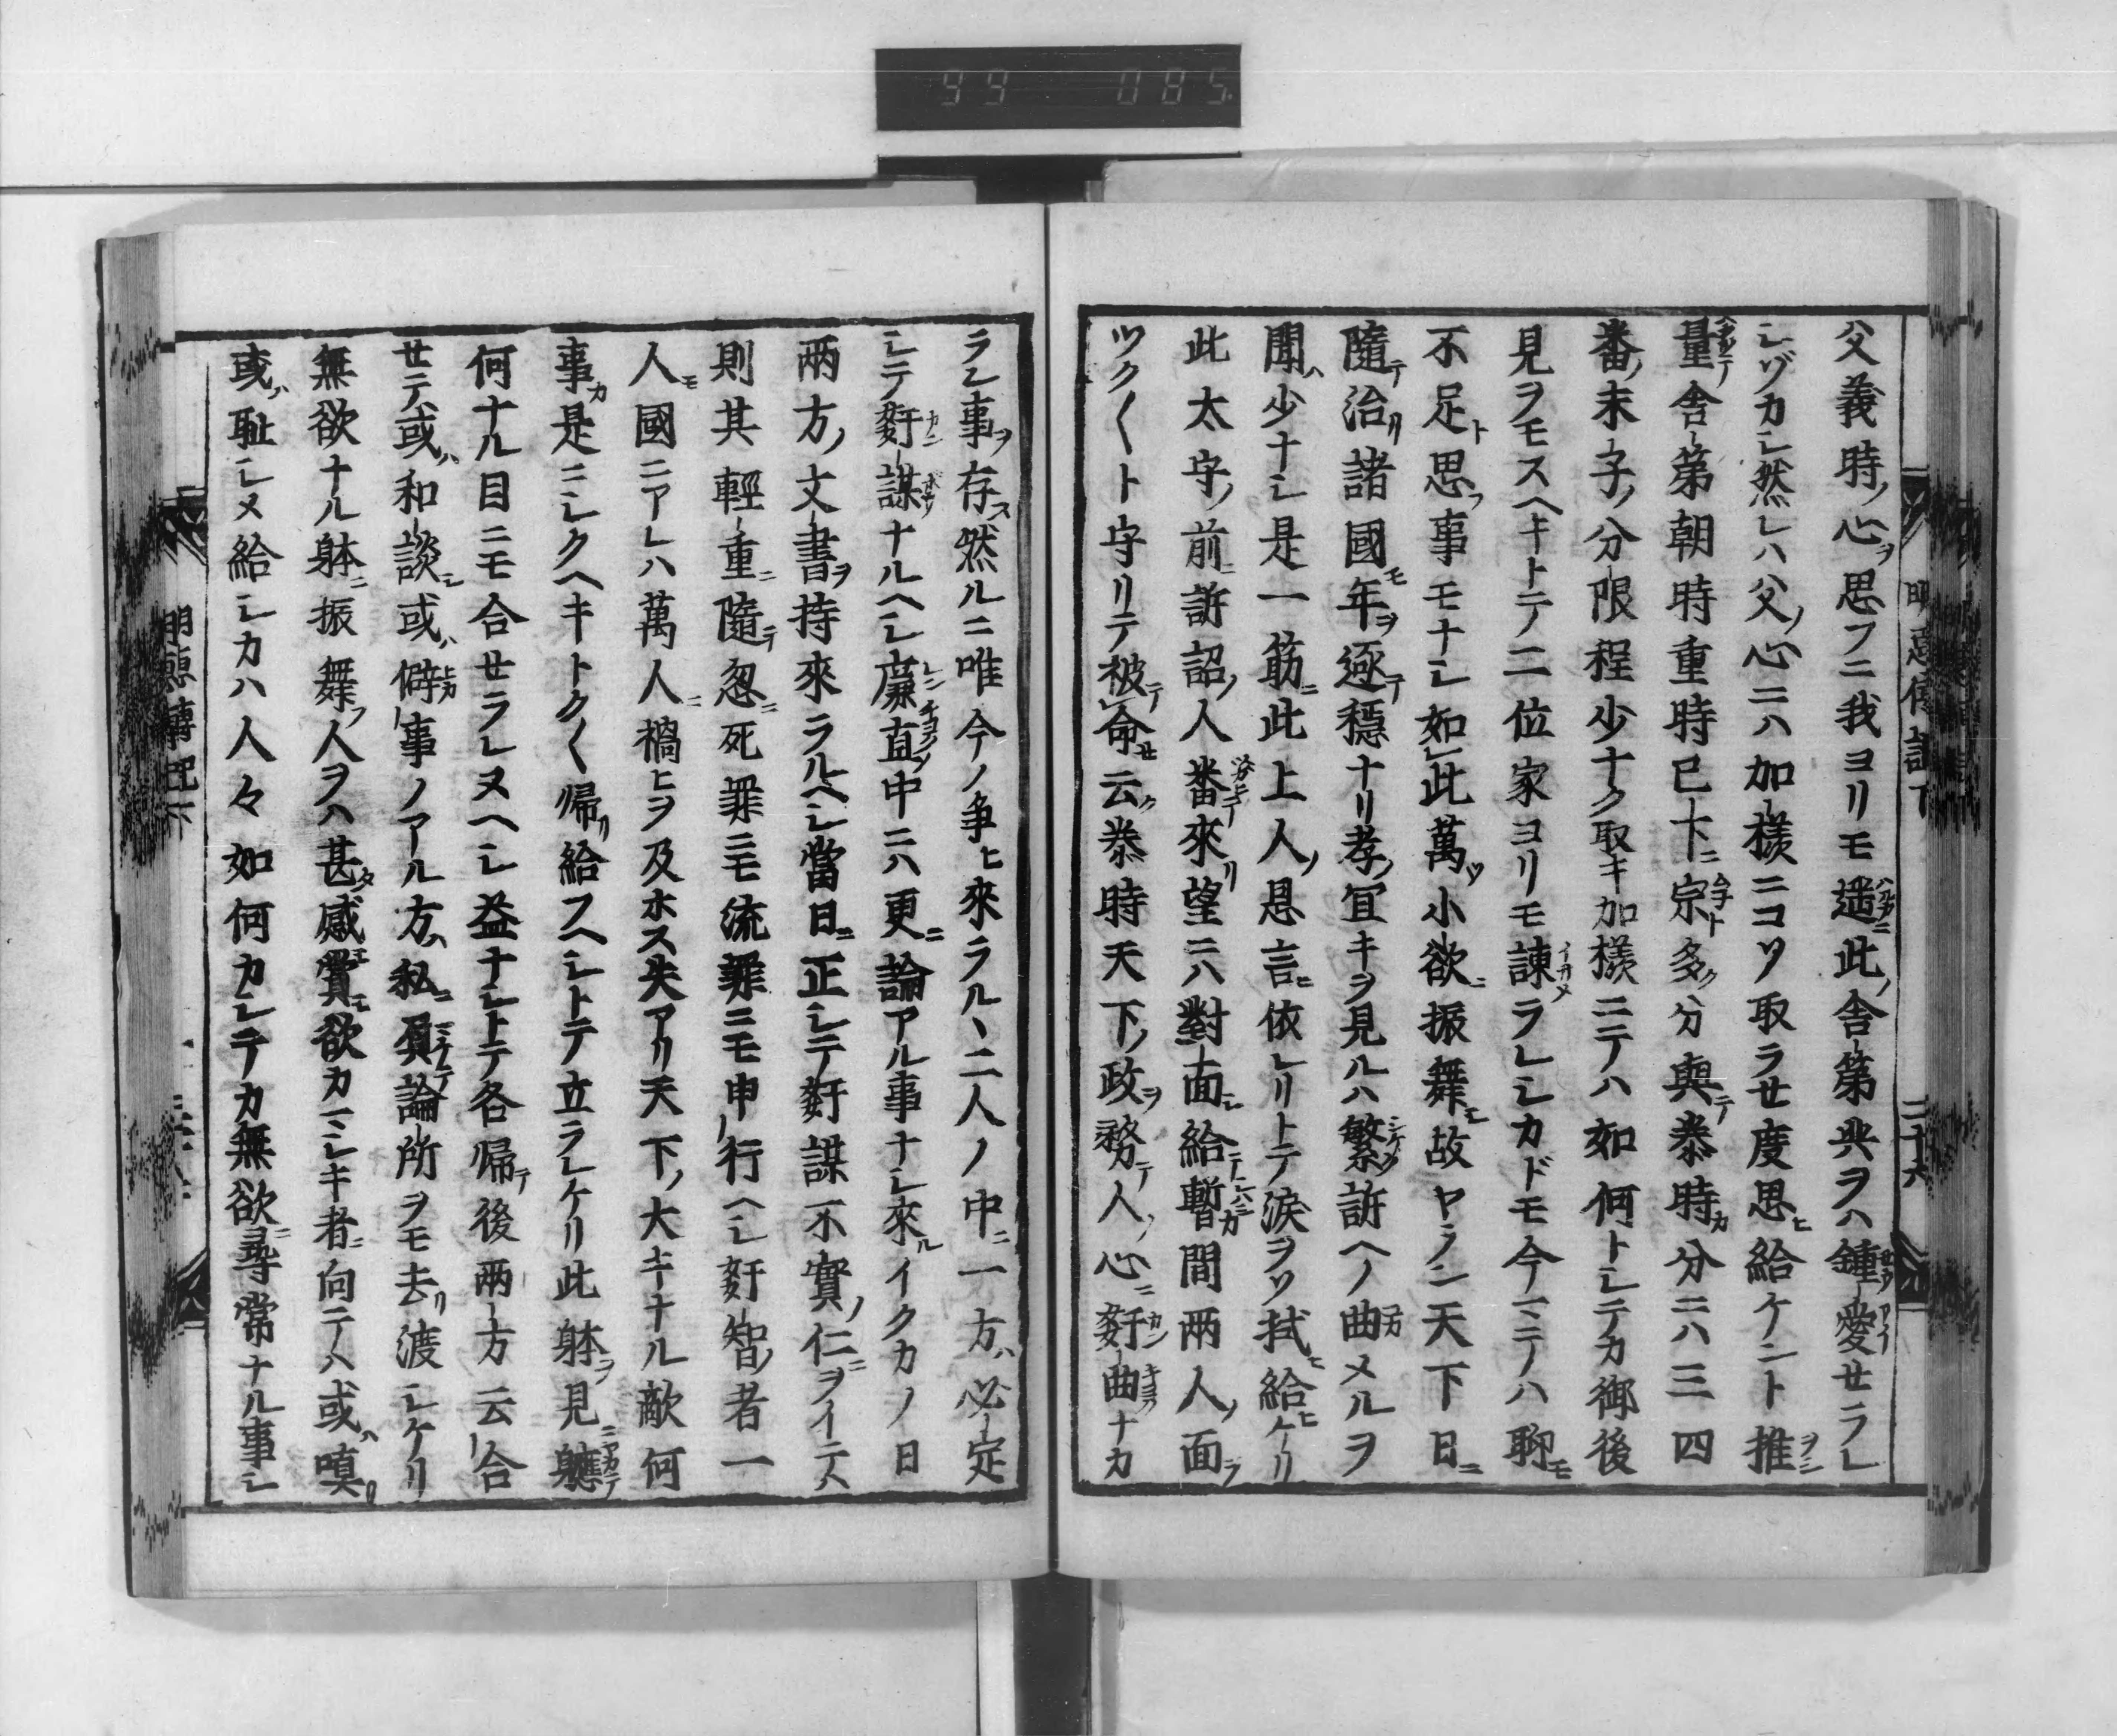 99 085
明恵傳記下
二十六
父義時ノ心ヲ思フニ我ヨリモ遥ハルカニ此ノ舎弟共ヲハ鍾愛セラレ
シヅカシ然レハ父ノ心ニハ加様ニコソ取ラセ度思ヒ給ケント推ヲシ
量ハカリテ舎弟朝時重時已下ニ宗ムネト多ク分與テ泰時カ分ニハ三四
番ノ末子ノ分限程少ナク取キ加様ニテハ如何トシテカ御後
見ヲモスヘキトテ二位家ヨリモ諫イサメラレシカドモ今マテハ聊モ
不足ト思フ事モナシ如此萬ツ小欲ニ振舞モ故ヤラン天下日ニ
隨テ治リ諸國モ年ヲ逐テ穏ナリ孝ノ冝キヲ見ルハ繁シケク訴ヘノ曲マカメルヲ
聞ハ少ナシ是一筋ニ此上人ノ恩言ニ依レリトテ涙ヲソ拭ヒ給ヒケリ
此太守ノ前ニ訴詔ノ人番ツカヒテ來リ望ニハ對面シ給テシハシカ暫間兩人ノ面ヲ
ツク〱ト守リテ被テ命セ云ク泰時天下ノ政ヲ務テ人ノ心ニ姧カン曲キヨクナカ
ラン事ヲ存ス然ルニ唯今ノ争ヒ來ラル丶二人ノ中ニ一方ハ必定
シテ姧カン謀ホウナルヘシ廉レン直チヨクノ中ニハ更ニ論アル事ナシ來ルイクカノ日
兩方ノ文書ヲ持來ラルヘシ當日ニ正シテ姧謀不實ノ仁ニヲイテハ
則其輕重ニ隨テ忽ニ死罪ニモ流罪ニモ申行ヘシ姧智ノ者一
人モ國ニアレハ萬人ニ禍ヒヲ及ホス失アリ天下ノ大キナル敵何
事カ是ニシクヘキトク〱帰リ給フヘシトテ立ラレケリ此躰ヲ見ニ軈ヤカテ
何ナル目ニモ合セラレヌヘシ益ナシトテ各帰テ後兩方云合
セテ或ハ和談シ或ハ僻ヒカ事ノアル方ハ私ニ負マケテ論所ヲモ去リ渡シケリ
無欲ナル躰ニ振舞フ人ヲハ甚タ感賞シ欲カマシキ者ニ向テハ或ハ嗔リ
或ハ恥シメ給シカハ人々如何カシテカ無欲ニ尋常ナル事シ
明恵傳記下